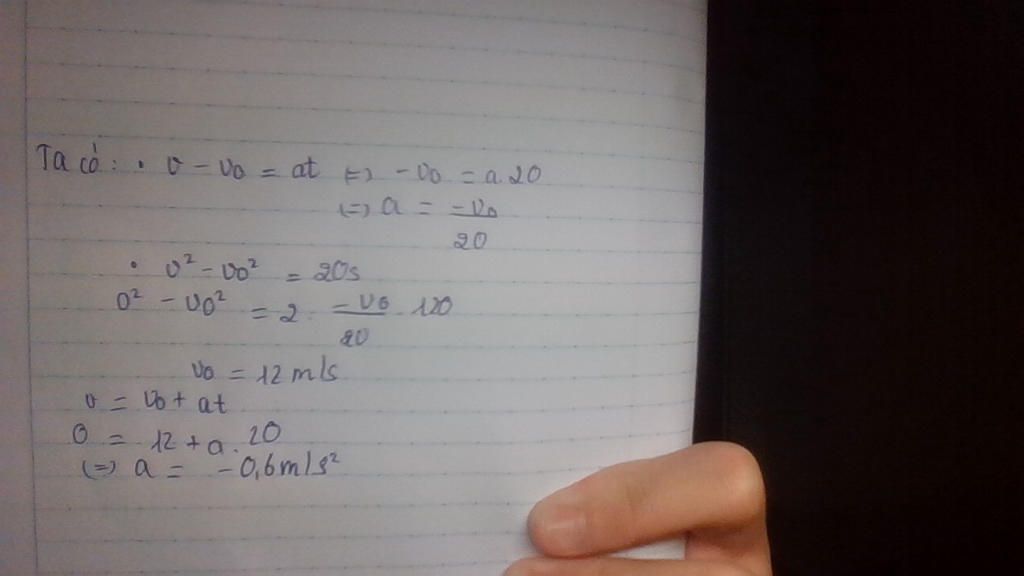 Ta có: • v - v₀ = at (=) -v₀ = a.20
(=) a = -v₀/20
• v² - v₀² = 20s
0² - v₀² = 2 . -v₀/20 . 120
v₀ = 12 m/s
v = v₀ + at
0 = 12 + a.20
(=) a = -0,6 m/s²